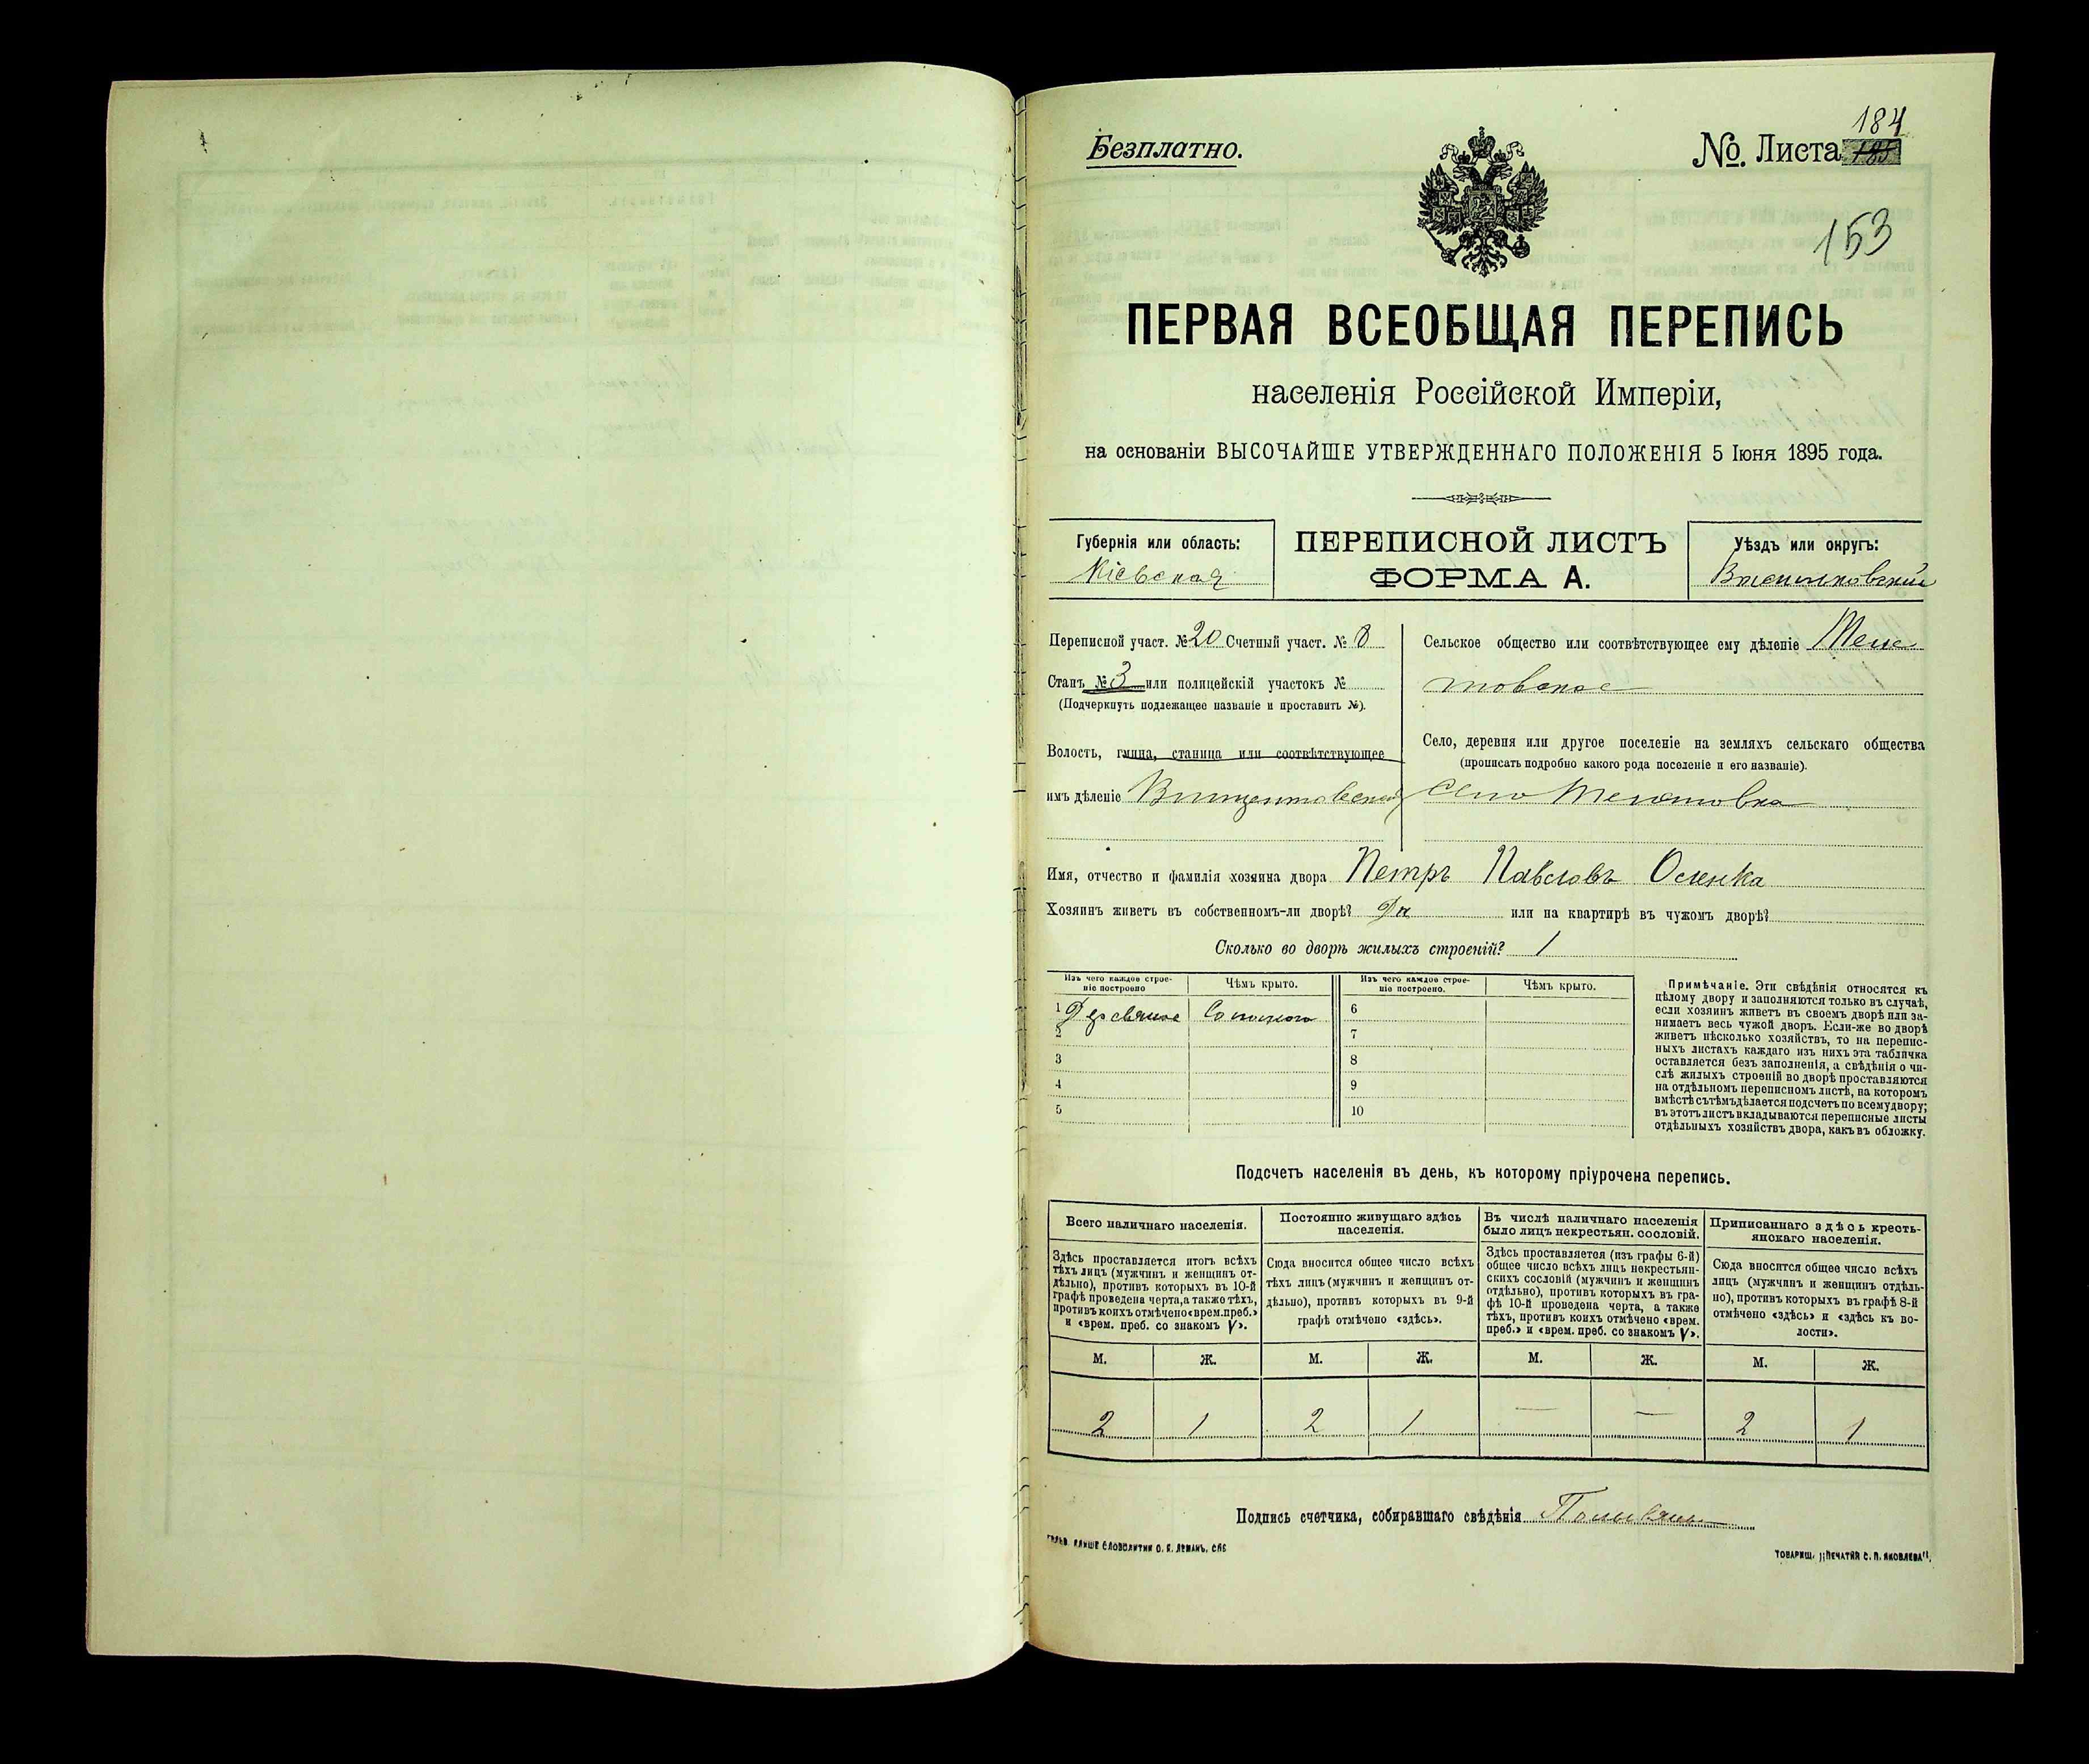 Безплатно.
№. Листа 184
153
ПЕРВАЯ ВСЕОБЩАЯ ПЕРЕПИСЬ
населенія Россійской Имперіи,
на основаніи ВЫСОЧАЙШЕ УТВЕРЖДЕННАГО ПОЛОЖЕНІЯ 5 Іюня 1895 года.
Губернія или область:
Кіевская
ПЕРЕПИСНОЙ ЛИСТЪ
ФОРМА А.
Уѣздъ или округъ:
Васильковскій
Переписной участ. № 20 Счетный участ. № 8
Станъ № 3 или полицейскій участокъ №
(Подчеркнуть подлежащее названіе и проставить №).
Волость, гмина, станица или соотвѣтствующее
имъ дѣленіе Винцентовская
Сельское общество или соотвѣтствующее ему дѣленіе
товское
Село, деревня или другое поселеніе на земляхъ сельскаго общества
(прописать подробно какого рода поселеніе и его названіе).
село
Имя, отчество и фамилія хозяина двора Петръ Павловъ Осенка
Хозяинъ живетъ въ собственномъ-ли дворѣ? Да или на квартирѣ въ чужомъ дворѣ?
Сколько во дворѣ жилыхъ строеній? 1
Изъ чего каждое строе-
ніе построено
Чѣмъ крыто.
Изъ чего каждое строе-
ніе построено.
Чѣмъ крыто.
1 Деревянное Соломою
2
3
4
5
6
7
8
9
10
Примѣчаніе. Эти свѣдѣнія относятся къ
цѣлому двору и заполняются только въ случаѣ,
если хозяинъ живетъ въ своемъ дворѣ или за-
нимаетъ весь чужой дворъ. Если-же во дворѣ
живетъ нѣсколько хозяйствъ, то на перепис-
ныхъ листахъ каждаго изъ нихъ эта табличка
оставляется безъ заполненія, а свѣдѣнія о чи-
слѣ жилыхъ строеній во дворѣ проставляются
на отдѣльномъ переписномъ листѣ, на которомъ
вмѣстѣ съ тѣмъ дѣлается подсчетъ по всему двору;
въ этотъ листъ вкладываются переписные листы
отдѣльныхъ хозяйствъ двора, какъ въ обложку.
Подсчетъ населенія въ день, къ которому пріурочена перепись.
Всего наличнаго населенія.
Здѣсь проставляется итогъ всѣхъ
тѣхъ лицъ (мужчинъ и женщинъ от-
дѣльно), противъ которыхъ въ 10-й
графѣ проведена черта, а также тѣхъ,
противъ коихъ отмѣчено «врем. преб.»
и «врем. преб. со знакомъ V».
Постоянно живущаго здѣсь
населенія.
Сюда вносится общее число всѣхъ
тѣхъ лицъ (мужчинъ и женщинъ от-
дѣльно), противъ которыхъ въ 9-й
графѣ отмѣчено «здѣсь».
Въ числѣ наличнаго населенія
было лицъ некрестьян. сословій.
Здѣсь проставляется (изъ графы 6-й)
общее число всѣхъ лицъ некрестьян-
скихъ сословій (мужчинъ и женщинъ
отдѣльно), противъ которыхъ въ гра-
фѣ 10-й проведена черта, а также
тѣхъ, противъ коихъ отмѣчено «врем.
преб.» и «врем. преб. со знакомъ V».
Приписаннаго здѣсь кресть-
янскаго населенія.
Сюда вносится общее число всѣхъ
лицъ (мужчинъ и женщинъ отдѣль-
но), противъ которыхъ въ графѣ 8-й
отмѣчено «здѣсь» и «здѣсь къ во-
лости».
М. Ж. М. Ж. М. Ж. М. Ж.
2 1 2 1 — — 2 1
Подпись счетчика, собиравшаго свѣдѣнія
КЛИШЕ СЛОВОЛИТНИ О. Я. ЛЕМАНЪ, СПБ
ТОВАРИЩ. „ПЕЧАТНЯ С. П. ЯКОВЛЕВА".